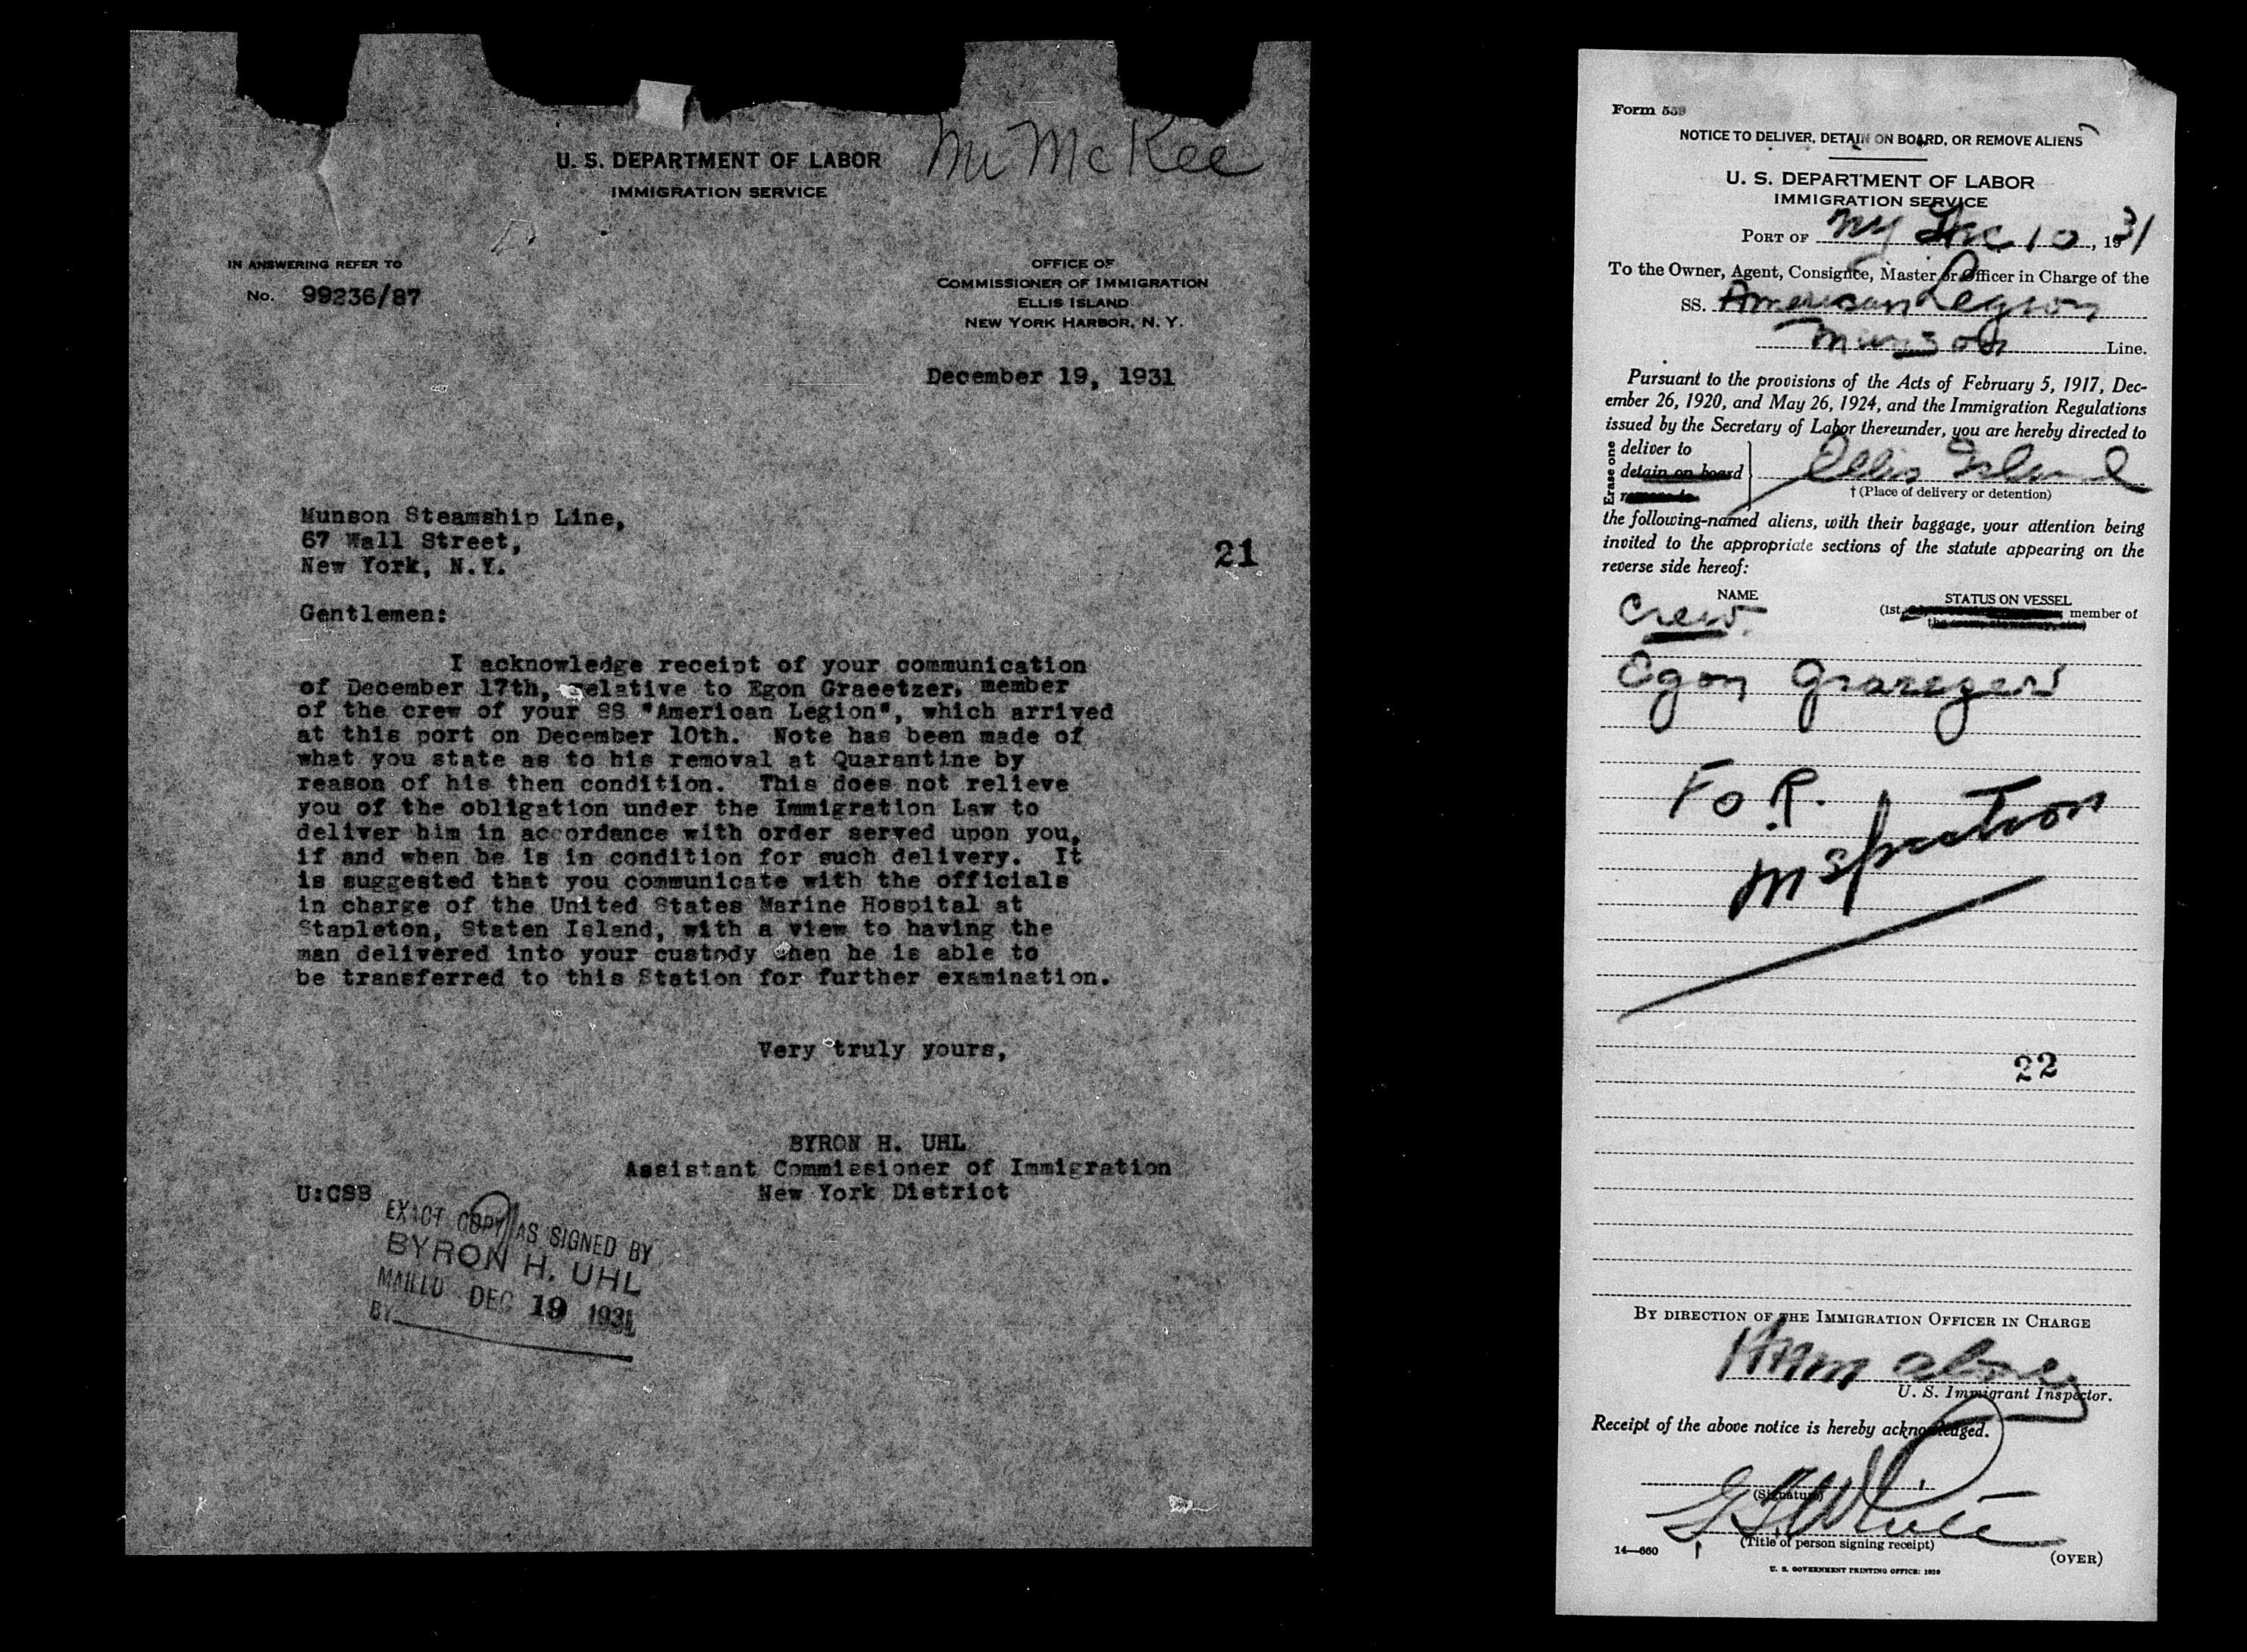 Mr McKee
U. S. DEPARTMENT OF LABOR
IMMIGRATION SERVICE
IN ANSWERING REFER TO
No. 99236/87
OFFICE OF
COMMISSIONER OF IMMIGRATION
ELLIS ISLAND
NEW YORK HARBOR, N. Y.
December 19, 1931
Munson Steamship Line,
67 Wall Street,
New York, N.Y.
21
Gentlemen:
I acknowledge receipt of your communication
of December 17th, relative to Egon Graeetzer, member
of the crew of your SS "American Legion", which arrived
at this port on December 10th. Note has been made of
what you state as to his removal at Quarantine by
reason of his then condition. This does not relieve
you of the obligation under the Immigration Law to
deliver him in accordance with order served upon you,
if and when he is in condition for such delivery. It
is suggested that you communicate with the officials
in charge of the United States Marine Hospital at
Stapleton, Staten Island, with a view to having the
man delivered into your custody when he is able to
be transferred to this Station for further examination.
Very truly yours,
BYRON H. UHL
Assistant Commissioner of Immigration
New York District
U:CSB
EXACT COPY AS SIGNED BY
BYRON H. UHL
MAILED DEC 19 1931
BY
Form 559
NOTICE TO DELIVER, DETAIN ON BOARD, OR REMOVE ALIENS
U. S. DEPARTMENT OF LABOR
IMMIGRATION SERVICE
PORT OF NY Dec 10, 1931
To the Owner, Agent, Consignee, Master or Officer in Charge of the
SS. American Legion
Munson Line.
Pursuant to the provisions of the Acts of February 5, 1917, Dec-
ember 26, 1920, and May 26, 1924, and the Immigration Regulations
issued by the Secretary of Labor thereunder, you are hereby directed to
Erase one
deliver to
detain on board
remove to
Ellis Island
† (Place of delivery or detention)
the following-named aliens, with their baggage, your attention being
invited to the appropriate sections of the statute appearing on the
reverse side hereof:
NAME
STATUS ON VESSEL
(1st, member of
Crew
Egon
FOR
inspection
22
BY DIRECTION OF THE IMMIGRATION OFFICER IN CHARGE
U. S. Immigrant Inspector.
Receipt of the above notice is hereby acknowledged.
(Signature)
White
(Title of person signing receipt)
14—660
(OVER)
U. S. GOVERNMENT PRINTING OFFICE: 1929